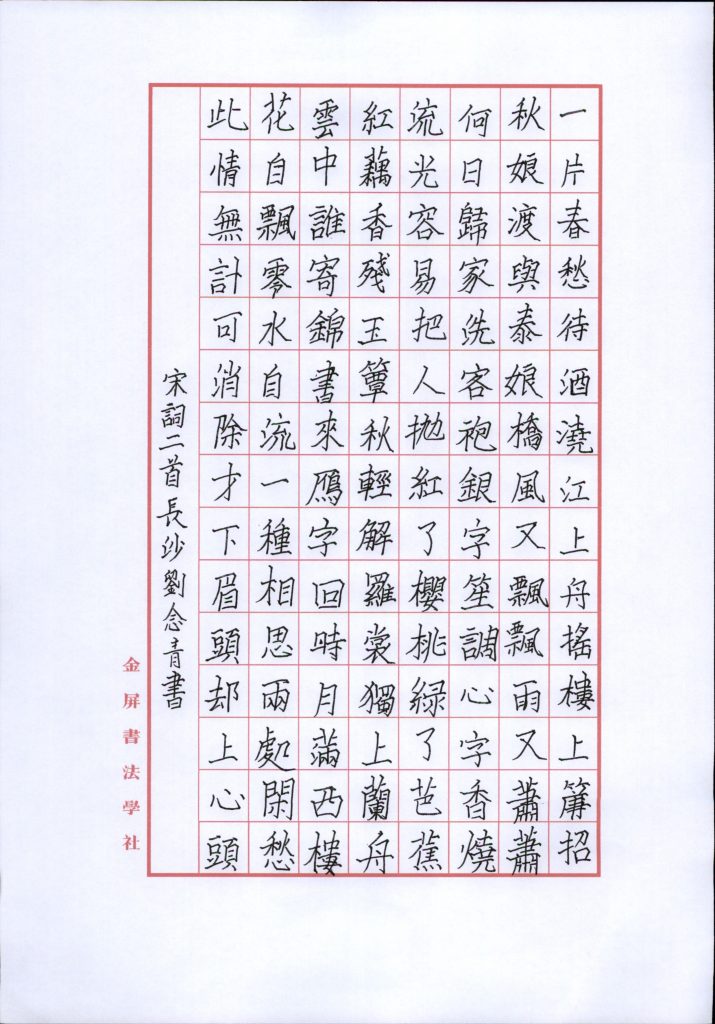 一片春愁待酒澆江上舟搖樓上簾招
秋娘渡與泰娘橋風又飄飄雨又蕭蕭
何日歸家洗客袍銀字笙調心字香燒
流光容易把人拋紅了櫻桃緑了芭蕉
紅藕香殘玉簟秋輕解羅裳獨上蘭舟
雲中誰寄錦書來鴈字回時月滿西樓
花自飄零水自流一種相思兩處閑愁
此情無計可消除才下眉頭却上心頭
宋詞二首長沙劉念青書
金屏書法學社